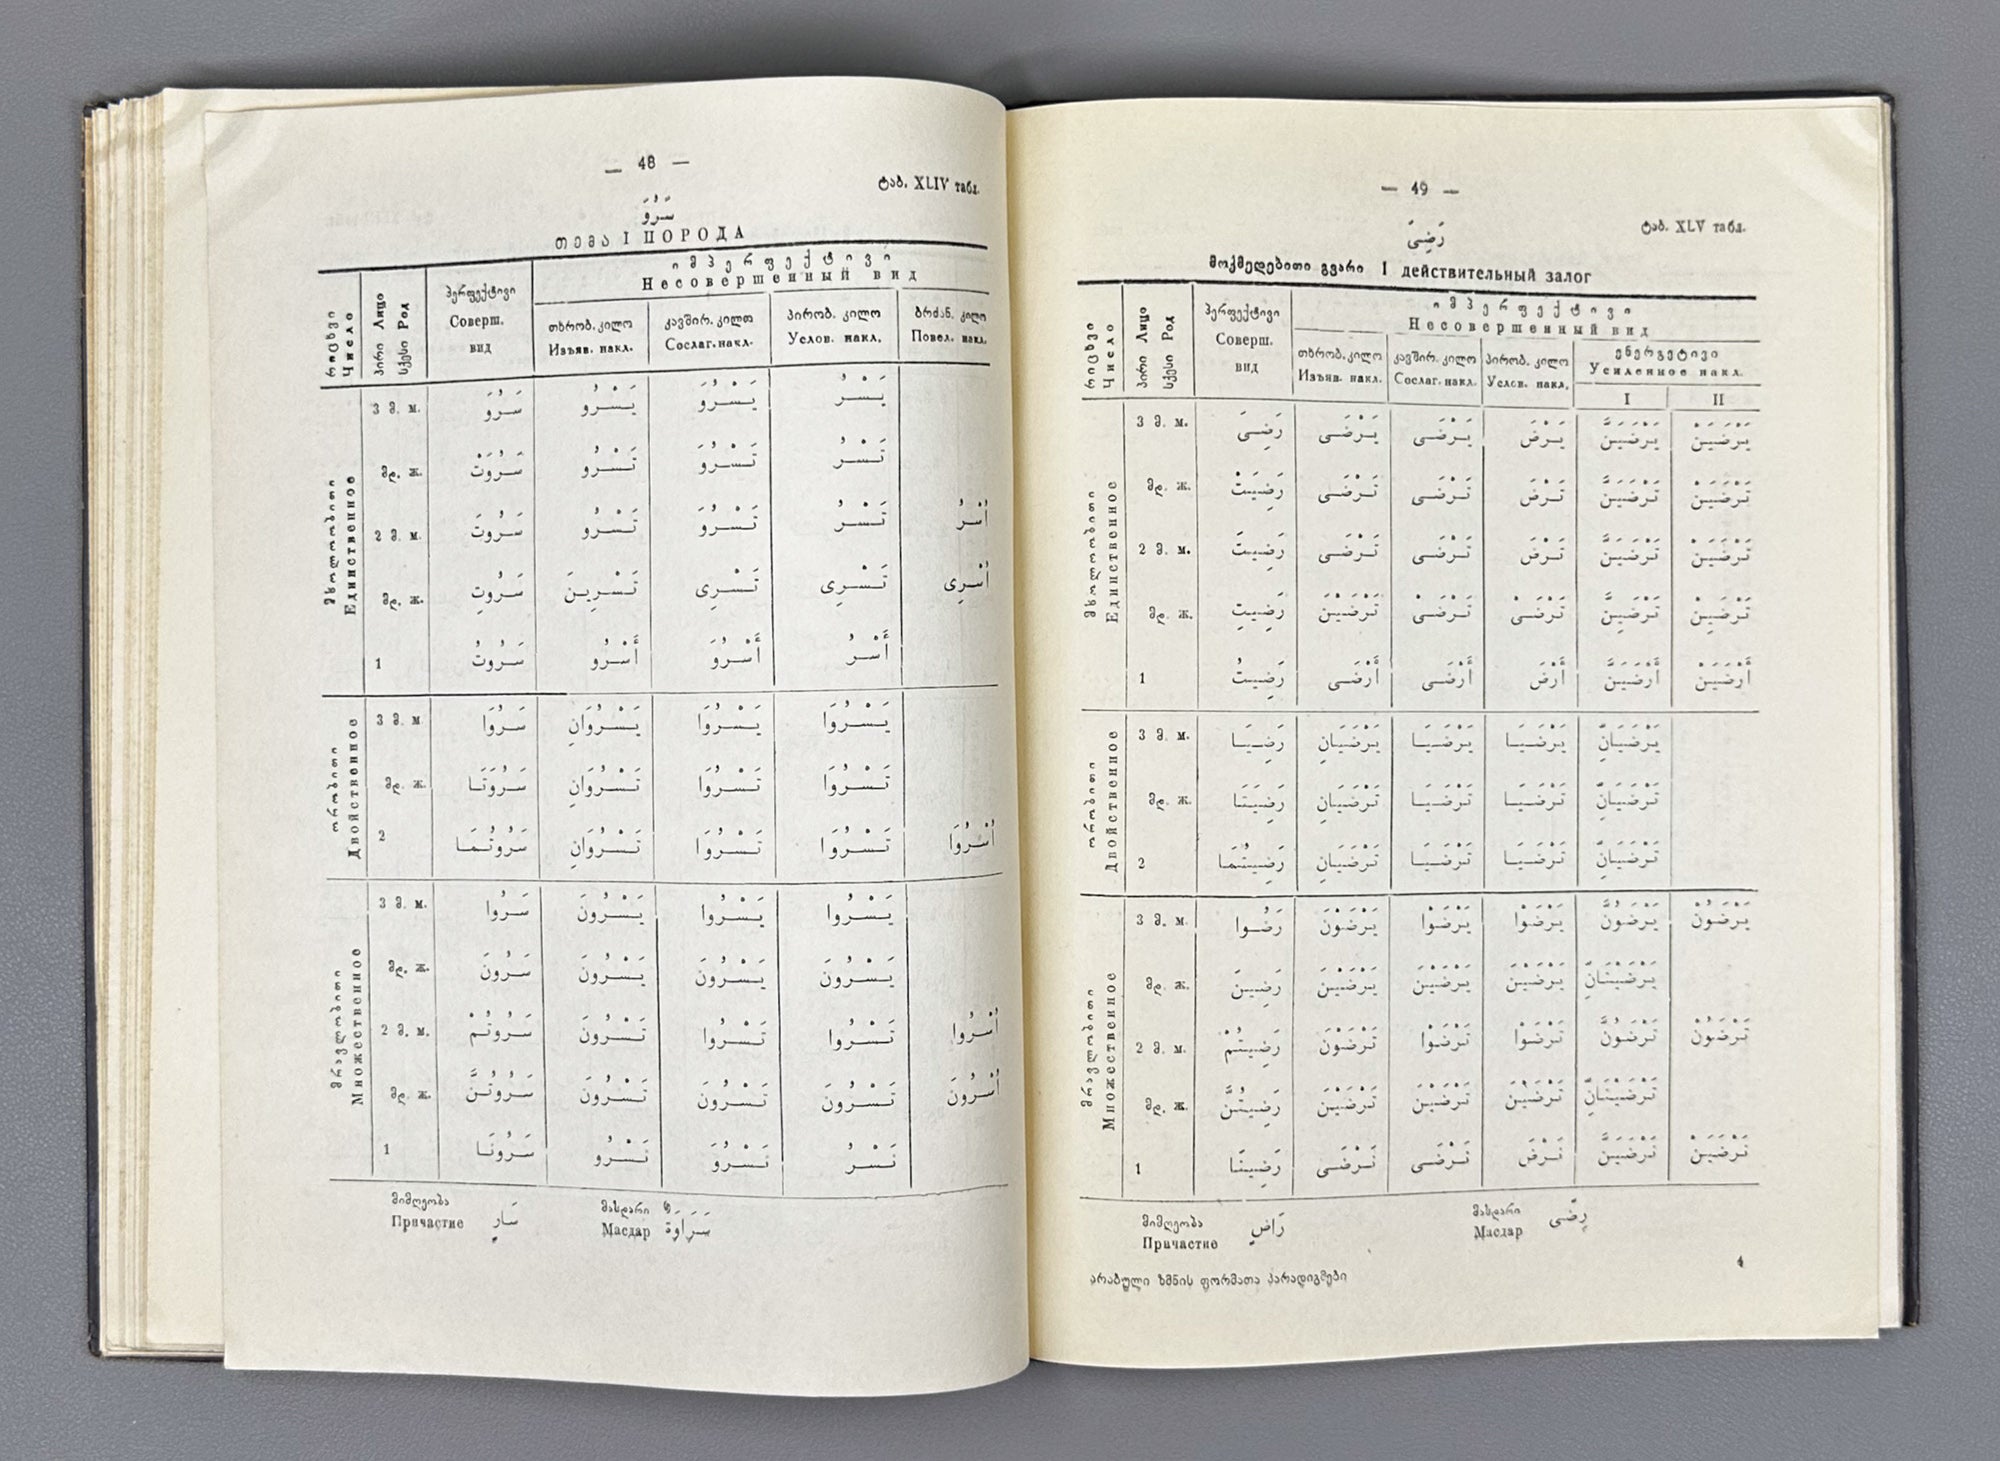 — 48 —
ტაბ. XLIV табл.
سَرُوَ
თემა I ПОРОДА
რიცხვი
Число
პირი Лицо
სქესი Род
პერფექტივი
Соверш.
вид
იმპერფექტივი
Несовершенный вид
თხრობ. კილო
Изъяв. накл.
კავშირ. კილო
Сослаг. накл.
პირობ. კილო
Услов. накл.
ბრძან. კილო
Повел. накл.
მხოლობითი
Единственное
3 მ. м. سَرُوَ يَسْرُو يَسْرُوَ يَسْرُ
მდ. ж. سَرُوَتْ تَسْرُو تَسْرُوَ تَسْرُ
2 მ. м. سَرُوتَ تَسْرُو تَسْرُوَ تَسْرُ اُسْرُ
მდ. ж. سَرُوتِ تَسْرِينَ تَسْرِى تَسْرِى اُسْرِى
1 سَرُوتُ أَسْرُو أَسْرُوَ أَسْرُ
ორობითი
Двойственное
3 მ. м سَرُوَا يَسْرُوَانِ يَسْرُوَا يَسْرُوَا
მდ. ж. سَرُوَتَا تَسْرُوَانِ تَسْرُوَا تَسْرُوَا
2 سَرُوتُمَا تَسْرُوَانِ تَسْرُوَا تَسْرُوَا اُسْرُوَا
მრავლობითი
Множественное
3 მ. м. سَرُوا يَسْرُونَ يَسْرُوا يَسْرُوا
მდ. ж. سَرُونَ يَسْرُونَ يَسْرُونَ يَسْرُونَ
2 მ. м. سَرُوتُمْ تَسْرُونَ تَسْرُوا تَسْرُوا اُسْرُوا
მდ. ж. سَرُوتُنَّ تَسْرُونَ تَسْرُونَ تَسْرُونَ اُسْرُونَ
1 سَرُونَا نَسْرُو نَسْرُوَ نَسْرُ
მიმღეობა
Причастие سَارٍ
მასდარი
Масдар سَرَاوَةٌ
— 49 —
ტაბ. XLV табл.
رَضِىَ
მოქმედებითი გვარი I действительный залог
რიცხვი
Число
პირი Лицо
სქესი Род
პერფექტივი
Соверш.
вид
იმპერფექტივი
Несовершенный вид
თხრობ. კილო
Изъяв. накл.
კავშირ. კილო
Сослаг. накл.
პირობ. კილო
Услов. накл.
ენერგეტივი
Усиленное накл.
I II
მხოლობითი
Единственное
3 მ. м. رَضِىَ يَرْضَى يَرْضَى يَرْضَ يَرْضَيَنَّ يَرْضَيَنْ
მდ. ж. رَضِيَتْ تَرْضَى تَرْضَى تَرْضَ تَرْضَيَنَّ تَرْضَيَنْ
2 მ. м. رَضِيتَ تَرْضَى تَرْضَى تَرْضَ تَرْضَيَنَّ تَرْضَيَنْ
მდ. ж. رَضِيتِ تَرْضَيْنَ تَرْضَىْ تَرْضَىْ تَرْضَيِنَّ تَرْضَيِنْ
1 رَضِيتُ أَرْضَى أَرْضَى أَرْضَ أَرْضَيَنَّ أَرْضَيَنْ
ორობითი
Двойственное
3 მ. м. رَضِيَا يَرْضَيَانِ يَرْضَيَا يَرْضَيَا يَرْضَيَانِّ
მდ. ж. رَضِيَتَا تَرْضَيَانِ تَرْضَيَا تَرْضَيَا تَرْضَيَانِّ
2 رَضِيتُمَا تَرْضَيَانِ تَرْضَيَا تَرْضَيَا تَرْضَيَانِّ
მრავლობითი
Множественное
3 მ. м. رَضُوا يَرْضَوْنَ يَرْضَوْا يَرْضَوْا يَرْضَوُنَّ يَرْضَوُنْ
მდ. ж. رَضِينَ يَرْضَيْنَ يَرْضَيْنَ يَرْضَيْنَ يَرْضَيْنَانِّ
2 მ. м. رَضِيتُمْ تَرْضَوْنَ تَرْضَوْا تَرْضَوْا تَرْضَوُنَّ تَرْضَوُنْ
მდ. ж. رَضِيتُنَّ تَرْضَيْنَ تَرْضَيْنَ تَرْضَيْنَ تَرْضَيْنَانِّ
1 رَضِينَا نَرْضَى نَرْضَى نَرْضَ نَرْضَيَنَّ نَرْضَيَنْ
მიმღეობა
Причастие رَاضٍ
მასდარი
Масдар رِضًى
არაბული ზმნის ფორმათა პარადიგმები
4